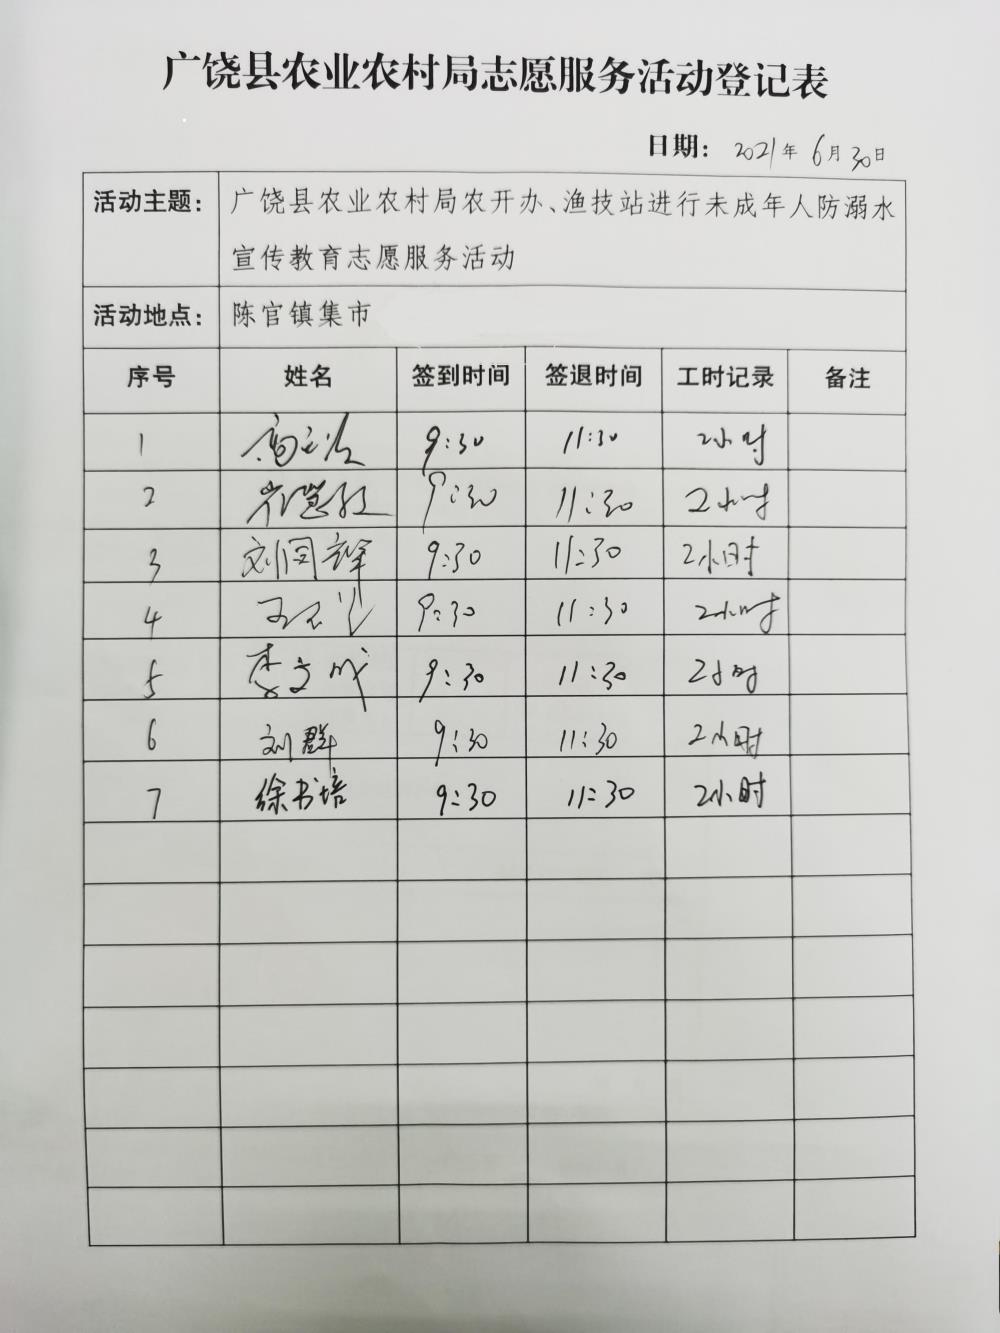 广饶县农业农村局志愿服务活动登记表
日期: 2021年6月30日
活动主题: 广饶县农业农村局农开办、渔技站进行未成年人防溺水
宣传教育志愿服务活动
活动地点: 陈官镇集市
序号 姓名 签到时间 签退时间 工时记录 备注
1 9:30 11:30 2小时
2 9:30 11:30 2小时
3 9:30 11:30 2小时
4 9:30 11:30 2小时
5 李文成 9:30 11:30 2小时
6 刘群 9:30 11:30 2小时
7 徐书培 9:30 11:30 2小时